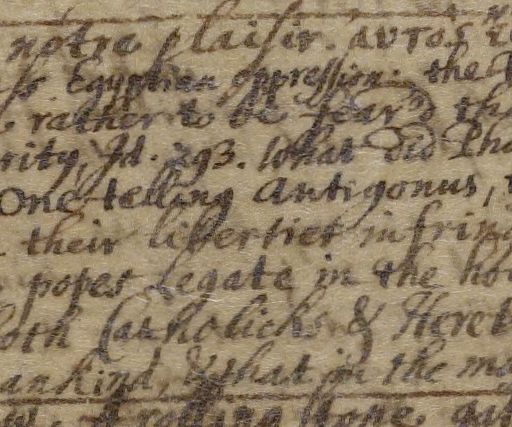 notre plaisir. αυτος
Egyptian oppression: the
rather to be fear'd th
rity, Id. 293. What did Pha
One telling Antigonus,
their liberties infring
popes Legate in the ho
oth Catholicks & Heret
ankind, & that in the ma
A rolling stone ga